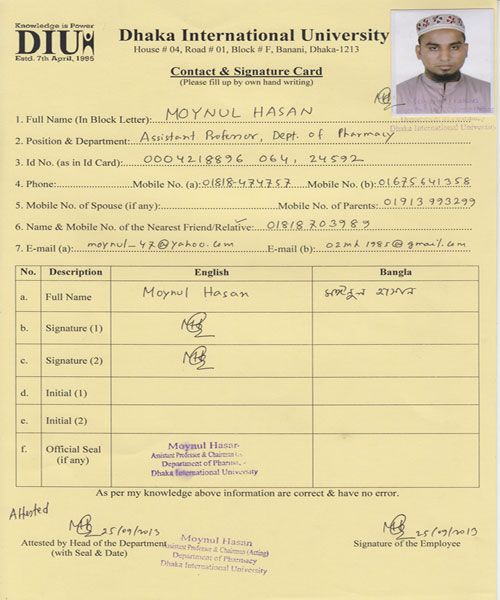 Knowledge is Power
DIU
Estd. 7th April, 1995
Dhaka International University
House # 04, Road # 01, Block # F, Banani, Dhaka-1213
Contact & Signature Card
(Please fill up by own hand writing)
Dhaka International University
1. Full Name (In Block Letter): MOYNUL HASAN
2. Position & Department: Assistant Professor, Dept. of Pharmacy
3. Id No. (as in Id Card): 0004218896 064, 24592
4. Phone: Mobile No. (a): 01818-474757 Mobile No. (b): 01675641358
5. Mobile No. of Spouse (if any): Mobile No. of Parents: 01913993299
6. Name & Mobile No. of the Nearest Friend/Relative: 01818703989
7. E-mail (a): moynul_47@yahoo.com E-mail (b): 02mh1985@gmail.com
No. Description English Bangla
a. Full Name Moynul Hasan মঈনুল হাসান
b. Signature (1)
c. Signature (2)
d. Initial (1)
e. Initial (2)
f. Official Seal (if any)
Moynul Hasan
Assistant Professor & Chairman
Department of Pharma
Dhaka International University
As per my knowledge above information are correct & have no error.
Attested
25/09/2013
25/09/2013
Attested by Head of the Department
(with Seal & Date)
Moynul Hasan
Assistant Professor & Chairman (Acting)
Department of Pharmacy
Dhaka International University
Signature of the Employee